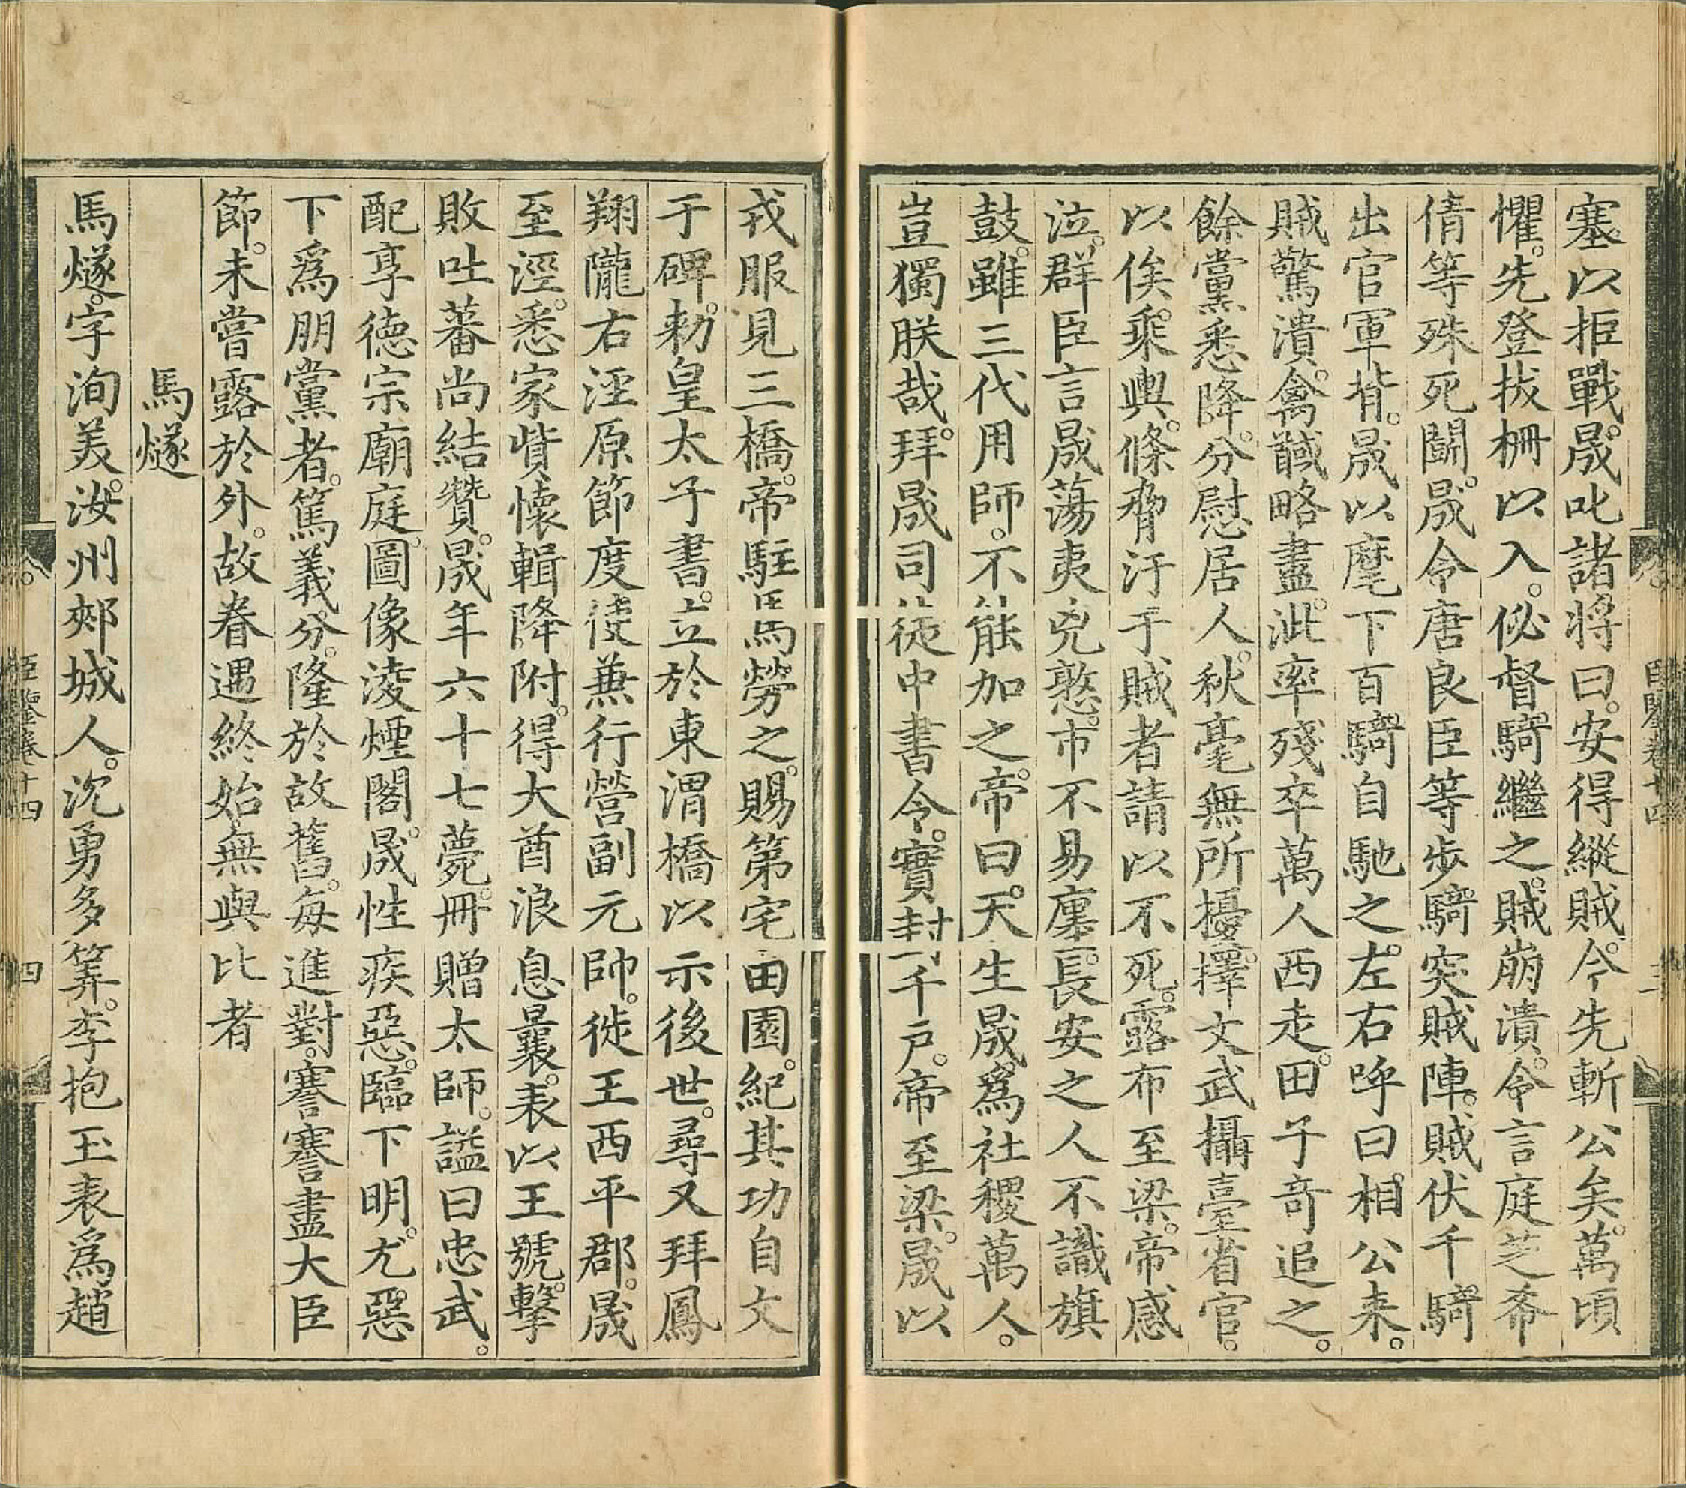 塞。以拒戰。晟叱諸將曰。安得縱賊。今先斬公矣。萬頃
懼。先登拔柵以入。佖督騎繼之。賊崩潰。令言庭芝希
倩等殊死鬬。晟令唐良臣等步騎突賊陣。賊伏千騎
出官軍背。晟以麾下百騎自馳之。左右呼曰。相公来。
賊驚潰。禽馘略盡。泚率殘卒萬人西走。田子奇追之。
餘黨悉降。分慰居人。秋毫無所擾。擇文武攝臺省官。
以俟乘輿。條脅汙于賊者請以不死。露布至梁。帝感
泣。群臣言晟蕩夷兇憝。市不易廛。長安之人不識旗
鼓。雖三代用師。不能加之。帝曰。天生晟。爲社稷萬人。
豈獨朕哉。拜晟司徒中書令。實封千戶。帝至梁。晟以
戎服見三橋。帝駐馬勞之。賜第宅田園。紀其功自文
于碑。勑皇太子書。立於東渭橋以示後世。尋又拜鳳
翔隴右涇原節度使兼行營副元帥。徙王西平郡。晟
至涇。悉家貲懷輯降附。得大酋浪息曩。表以王號。擊
敗吐蕃尚結贊。晟年六十七薨。冊贈太師。諡曰忠武。
配享德宗廟庭。圖像淩煙閣。晟性疾惡。臨下明。尤惡
下爲朋黨者。篤義分。隆於故舊。每進對。謇謇盡大臣
節。未嘗露於外。故眷遇終始無與比者
馬燧
馬燧。字洵美。汝州郟城人。沉勇多筭。李抱玉表爲趙
臣鑒卷十四
三
臣鑒卷十四
四